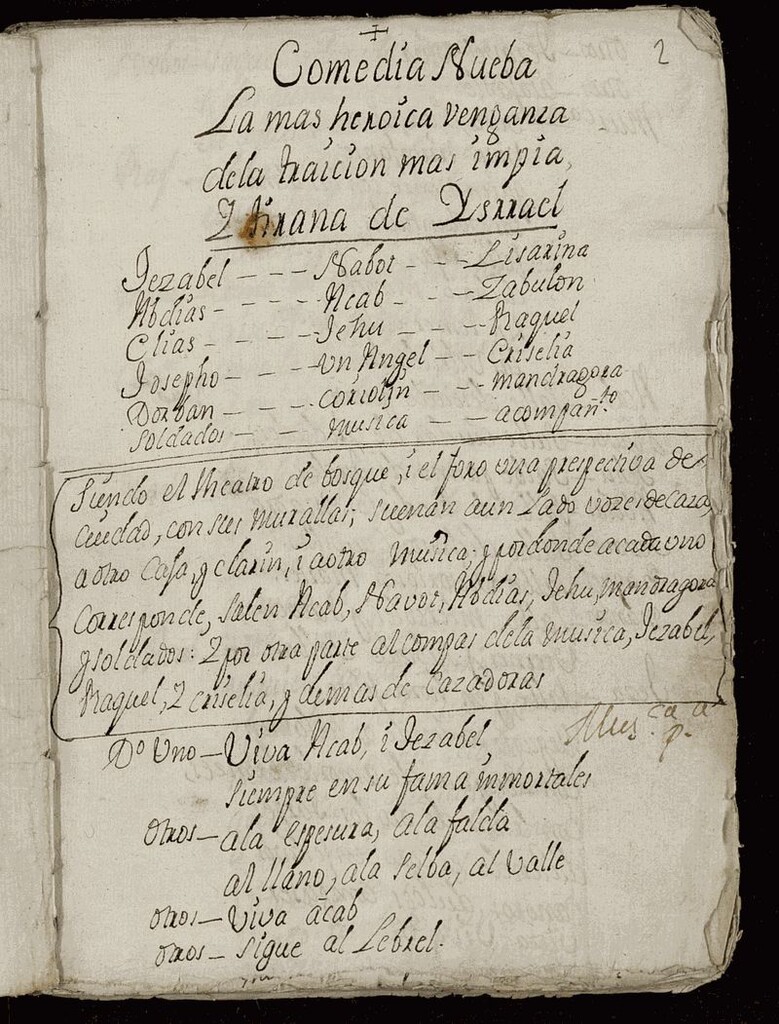 2
Comedia Nueba
La mas heroica venganza
dela traicion mas impia,
Y tirana de Ysrrael
Jezabel - - - Nabot - - - Lisarina
Abdias - - - Acab - - - Zabulon
Elias - - - Jehu - - - Raquel
Josepho - - - Un Angel - - Criselia
Dorban - - - coriolin - - mandragora
Soldados - - musica - - acompañ.to
Siendo el theatro de bosque, i el foro una prespectiva de
Ciudad, con sus murallas; suenan aun Lado vozes de Caza,
a otro Caja, y clarin, i aotro musica; y por donde acada uno
Corresponde, salen Acab, Navot, Abdias, Jehu, mandragora
y soldados: Y por otra parte al compas dela musica, Jezabel,
Raquel, Y criselia, y demas de Cazadoras
Mus.ca a p.a
Do Uno - Viva Acab, i Jezabel
Siempre en su fama immortales
otros - ala espesura, ala falda
al llano, ala selba, al valle
otros - Viva acab
otros - Sigue al Lebrel.